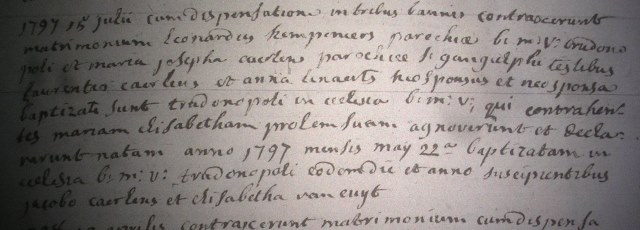 1797 15 julii cum dispensatione in tribus bannis contraxerunt
matrimonium leonardus kempeniers parochiæ b: m: v: trudono
poli et maria josepha caerlens parochiæ sti gangulphi testibus
laurentio caerlens et anna linaerts neosponsus et neosponsa
baptizati sunt trudonopoli in ecclesia b: m: v: qui contrahen
tes mariam elisabetham prolem suam agnoverunt et decla
rarunt natam anno 1797 mensis may 22a baptizatam in
ecclesia b: m: v: trudonopoli eodem die et anno suscipientibus
jacobo caerlens et elisabetha van euyt
aprilis contraxerunt matrimonium cum dispensa